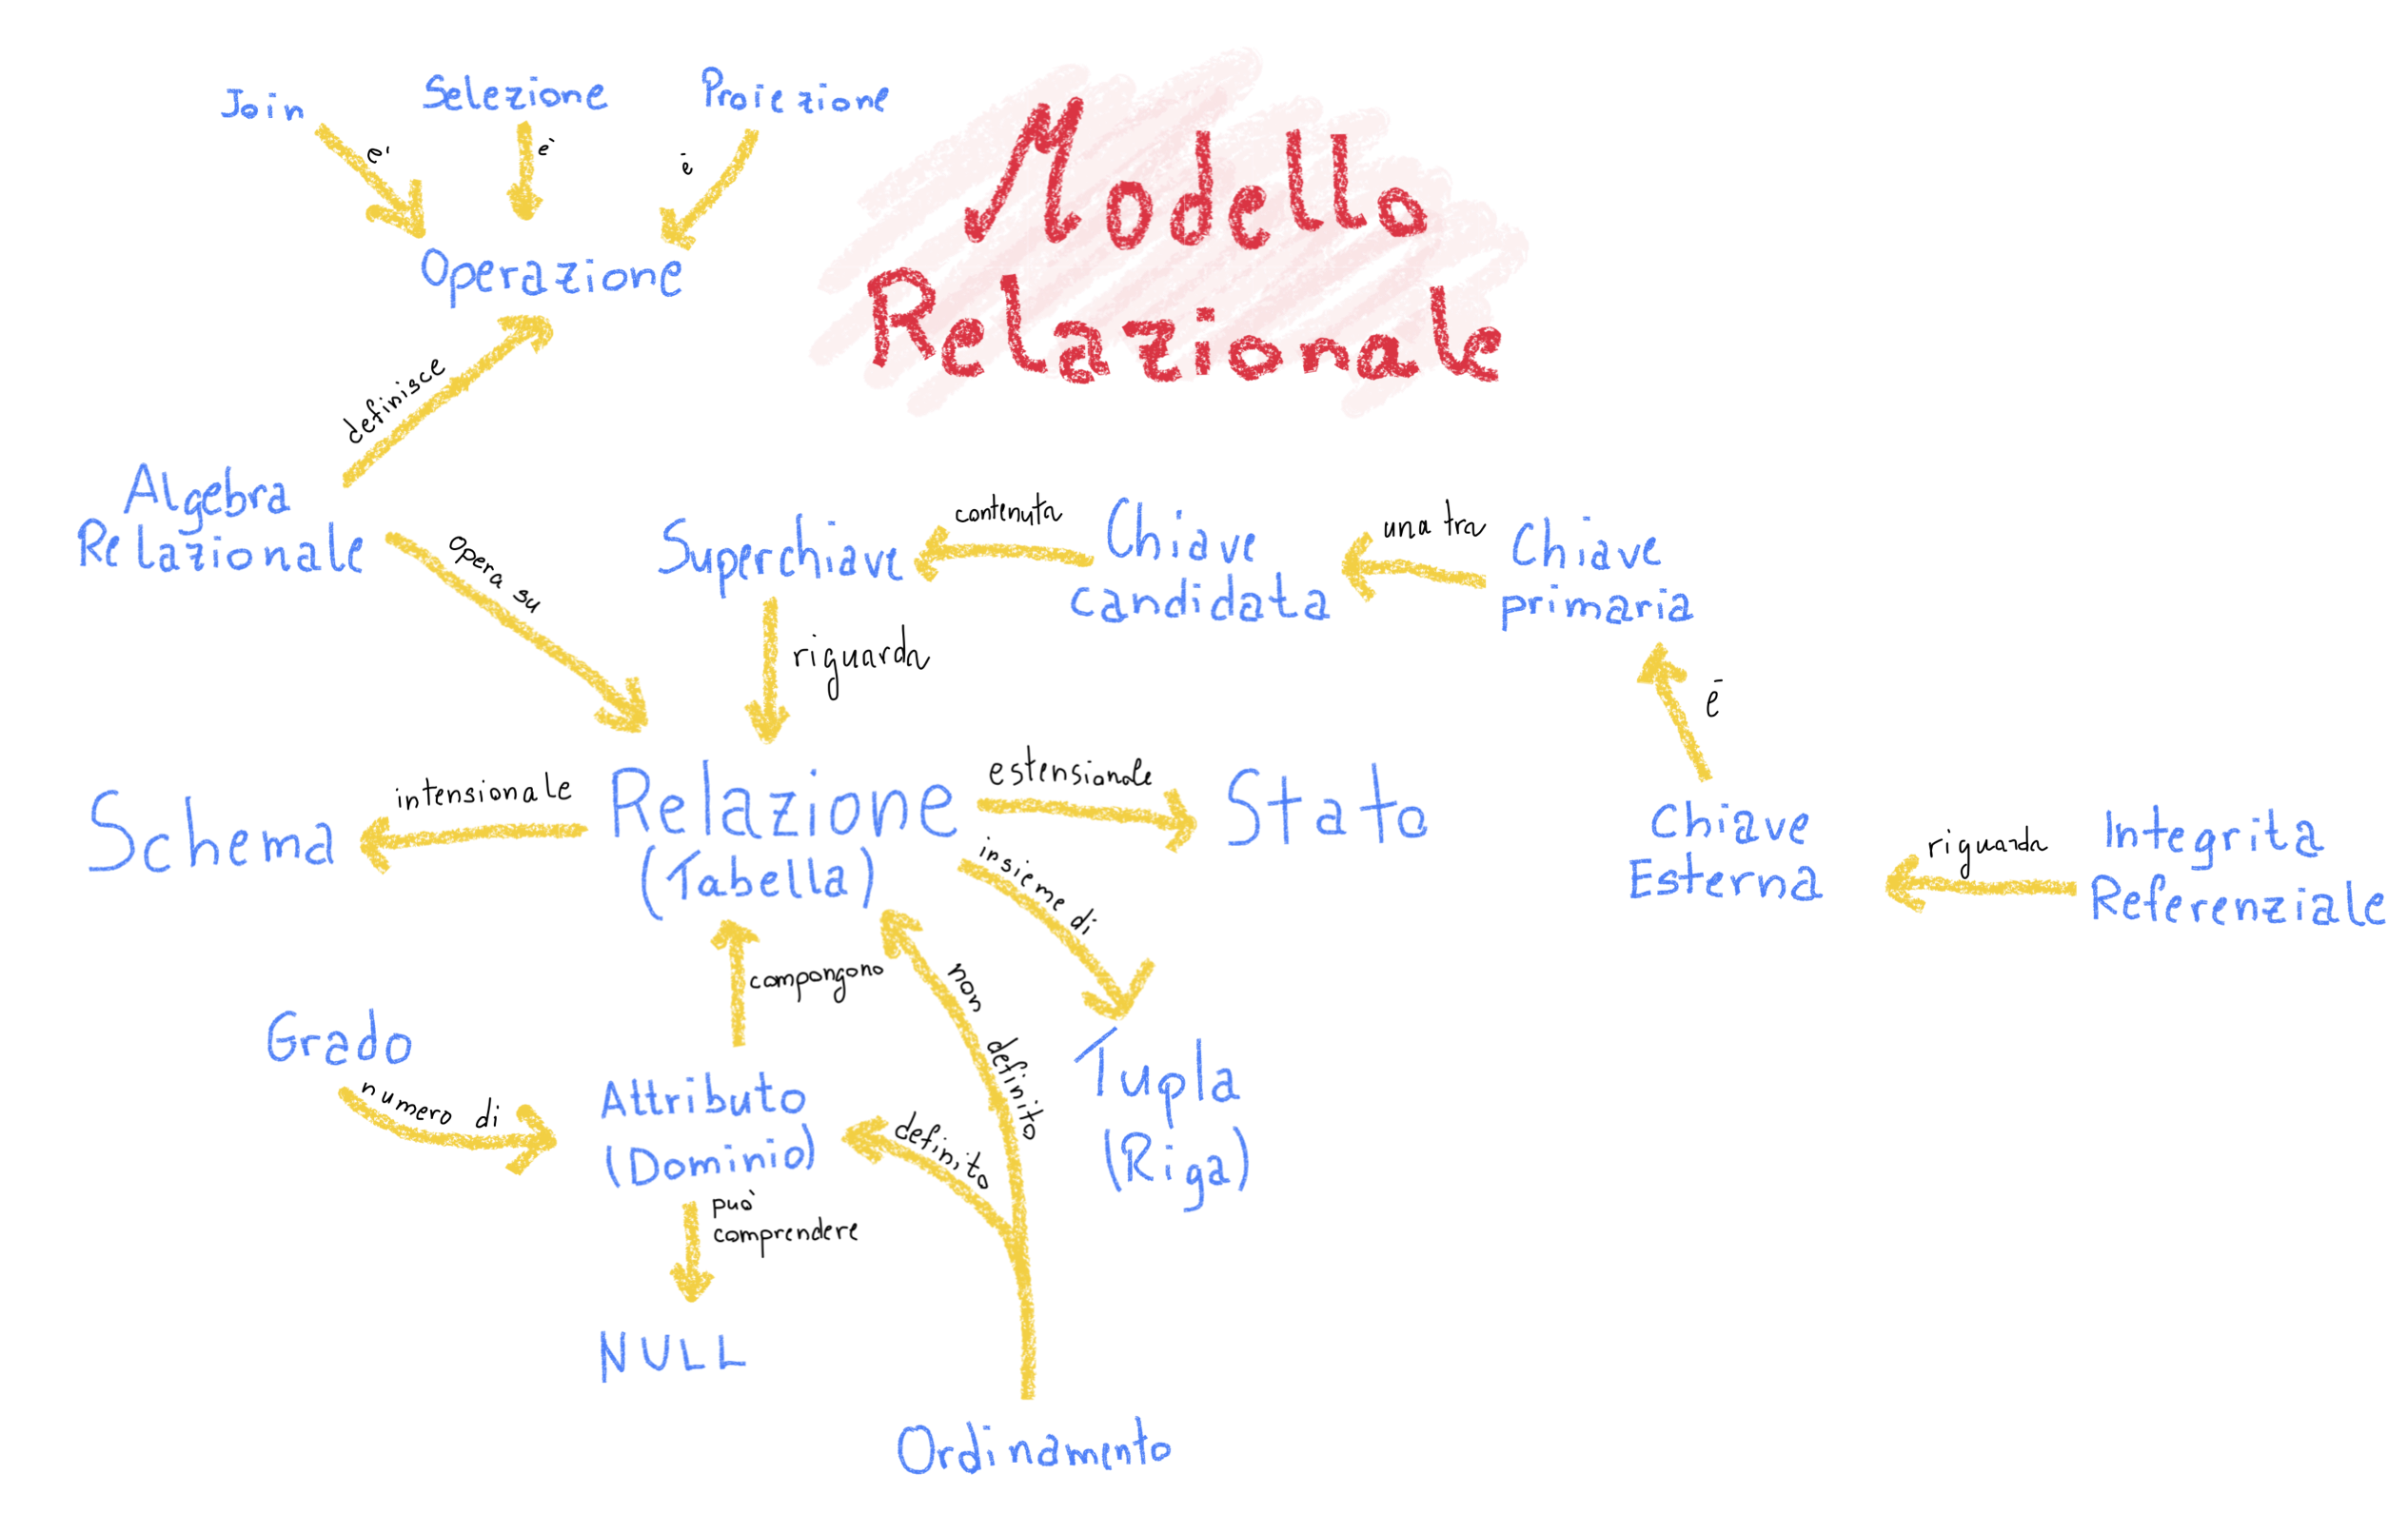 Join
Selezione
Proiezione
e'
è
è
Modello
Relazionale
Operazione
definisce
Algebra
Relazionale
opera su
Superchiave
contenuta
Chiave
candidata
una tra
Chiave
primaria
riguarda
è
Schema
intensionale
Relazione
(Tabella)
estensionale
Stato
insieme di
Chiave
Esterna
riguarda
Integrita
Referenziale
compongono
non definito
Grado
numero di
Attributo
(Dominio)
definito
Tupla
(Riga)
può
comprendere
NULL
Ordinamento